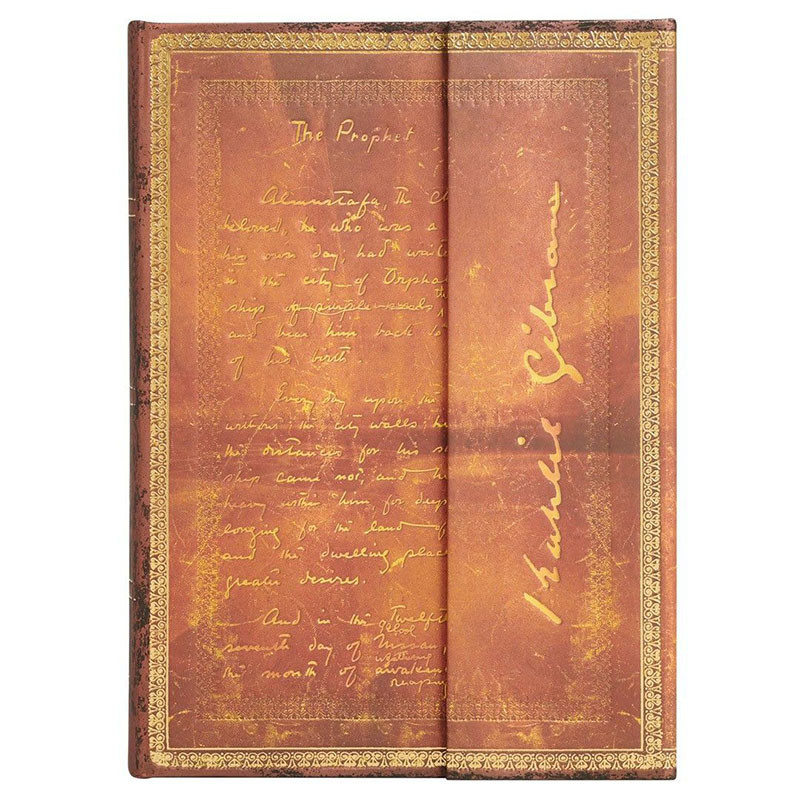 The Prophet
Almustafa, the Ch
beloved, he who was a
his own day, had waite
in the city of Orphal
ship of purple sails the
and bear him back to
of his birth.
Every day upon the
without the city walls; he
the distances for his s
ship came not; and he
heavy within him, for deep
longing for the land of
and the dwelling place
greater desires.
And in the Twelft
seventh day of Nissan,
the month of awaken
reaping
Kahlil Gibran